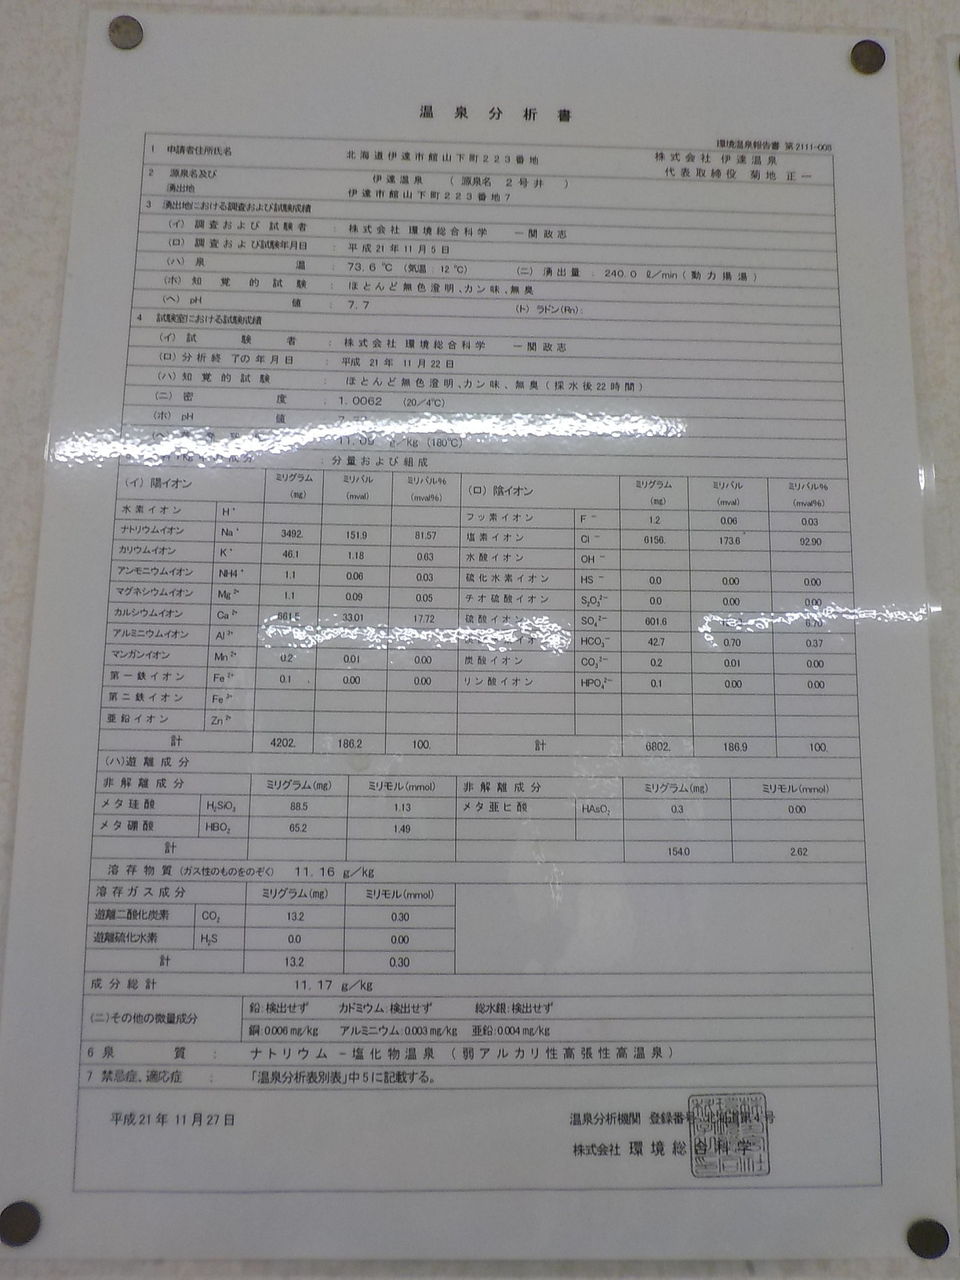 温泉分析書
環境温泉報告書 第2111-008
1 申請者住所氏名 北海道伊達市館山下町223番地 株式会社 伊達温泉
代表取締役 菊地 正一
2 源泉名及び 伊達温泉 ( 源泉名 2号井 )
湧出地 伊達市館山下町223番地7
3 湧出地における調査および試験成績
(イ) 調査および試験者 : 株式会社 環境総合科学 一関 政志
(ロ) 調査および試験年月日 : 平成21年11月5日
(ハ) 泉温 : 73.6℃ (気温:12℃) (ニ) 湧出量 : 240.0 ℓ/min(動力揚湯)
(ホ) 知覚的試験 : ほとんど無色澄明、カン味、無臭
(ヘ) pH値 : 7.7 (ト) ラドン(Rn):
4 試験室における試験成績
(イ) 試験者 : 株式会社 環境総合科学 一関 政志
(ロ) 分析終了の年月日 : 平成 21年 11月22日
(ハ) 知覚的試験 : ほとんど無色澄明、カン味、無臭(採水後22時間)
(ニ) 密度 : 1.0062 (20/4℃)
(ホ) pH値 :
11.09 g/kg (180℃)
成分 : 分量および組成
(イ) 陽イオン ミリグラム(mg) ミリバル(mval) ミリバル%(mval%) (ロ) 陰イオン ミリグラム(mg) ミリバル(mval) ミリバル%(mval%)
水素イオン H⁺ フッ素イオン F⁻ 1.2 0.06 0.03
ナトリウムイオン Na⁺ 3492. 151.9 81.57 塩素イオン Cl⁻ 6156. 173.6 92.90
カリウムイオン K⁺ 46.1 1.18 0.63 水酸イオン OH⁻
アンモニウムイオン NH4⁺ 1.1 0.06 0.03 硫化水素イオン HS⁻ 0.0 0.00 0.00
マグネシウムイオン Mg²⁺ 1.1 0.09 0.05 チオ硫酸イオン S₂O₃²⁻ 0.0 0.00 0.00
カルシウムイオン Ca²⁺ 661.5 33.01 17.72 硫酸イオン SO₄²⁻ 601.6 6.70
アルミニウムイオン Al³⁺ イオン HCO₃⁻ 42.7 0.70 0.37
マンガンイオン Mn²⁺ 0.2 0.01 0.00 炭酸イオン CO₃²⁻ 0.2 0.01 0.00
第一鉄イオン Fe²⁺ 0.1 0.00 0.00 リン酸イオン HPO₄²⁻ 0.1 0.00 0.00
第二鉄イオン Fe³⁺
亜鉛イオン Zn²⁺
計 4202. 186.2 100. 計 6802. 186.9 100.
(ハ)遊離成分
非解離成分 ミリグラム(mg) ミリモル(mmol) 非解離成分 ミリグラム(mg) ミリモル(mmol)
メタ珪酸 H₂SiO₃ 88.5 1.13 メタ亜ヒ酸 HAsO₂ 0.3 0.00
メタ硼酸 HBO₂ 65.2 1.49
計 154.0 2.62
溶存物質(ガス性のものをのぞく) 11.16 g/kg
溶存ガス成分 ミリグラム(mg) ミリモル(mmol)
遊離二酸化炭素 CO₂ 13.2 0.30
遊離硫化水素 H₂S 0.0 0.00
計 13.2 0.30
成分総計 11.17 g/kg
(ニ)その他の微量成分 鉛:検出せず カドミウム:検出せず 総水銀:検出せず
銅:0.006 mg/kg アルミニウム:0.003 mg/kg 亜鉛:0.004 mg/kg
6 泉質 : ナトリウム-塩化物温泉 (弱アルカリ性高張性高温泉)
7 禁忌症、適応症 : 「温泉分析表別表」中5に記載する。
平成21年 11月27日 温泉分析機関 登録番号 北海道第4号
株式会社 環境総合科学